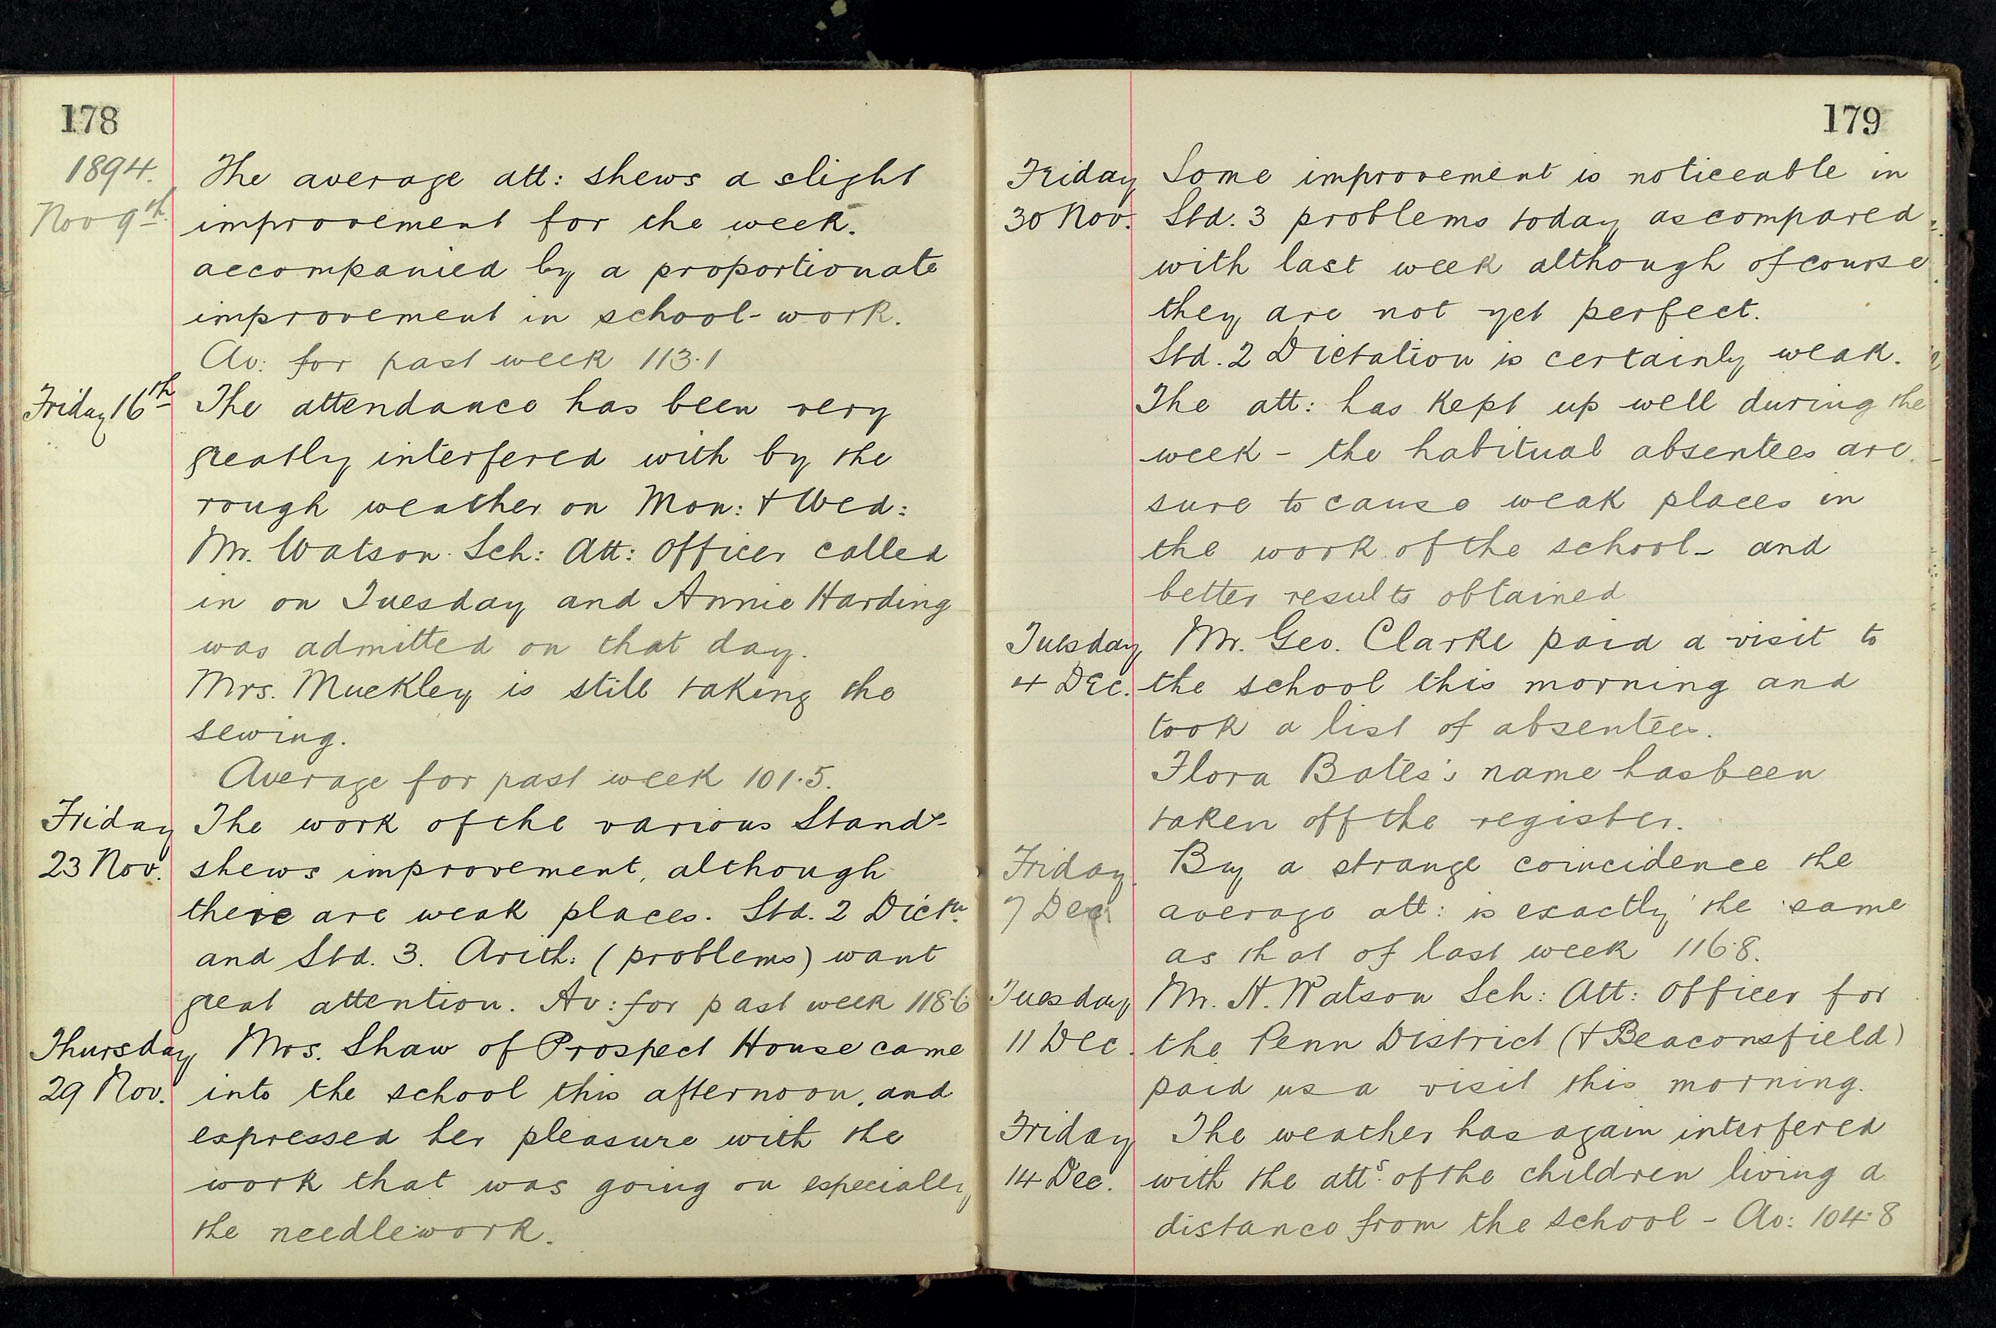 178
1894.
Nov 9th.
The average att: shews a slight
improvement for the week.
accompanied by a proportionate
improvement in school-work.
Av: for past week 113.1
Friday 16th
The attendance has been very
greatly interfered with by the
rough weather on Mon: & Wed:
Mr. Watson Sch: Att: Officer called
in on Tuesday and Annie Harding
was admitted on that day.
Mrs. Muckley is still taking the
sewing.
Average for past week 101.5.
Friday
23 Nov.
The work of the various Stands
shews improvement, although
there are weak places. Std. 2 Dictn
and Std. 3. Arith: (problems) want
great attention. Av: for past week 118.6
Thursday
29 Nov.
Mrs. Shaw of Prospect House came
into the school this afternoon, and
expressed her pleasure with the
work that was going on especially
the needlework.
179
Friday
30 Nov.
Some improvement is noticeable in
Std. 3 problems today as compared
with last week although of course
they are not yet perfect.
Std. 2 Dictation is certainly weak.
The att: has kept up well during the
week - the habitual absentees are
sure to cause weak places in
the work of the school - and
better results obtained
Tuesday
4 Dec.
Mr. Geo. Clarke paid a visit to
the school this morning and
took a list of absentees.
Flora Bates's name has been
taken off the register.
Friday
7 Dec
By a strange coincidence the
average att: is exactly the same
as that of last week 116.8.
Tuesday
11 Dec.
Mr. H. Watson Sch: Att: Officer for
the Penn District (& Beaconsfield)
paid us a visit this morning.
Friday
14 Dec.
The weather has again interfered
with the atts. of the children living a
distance from the school - Av: 104.8